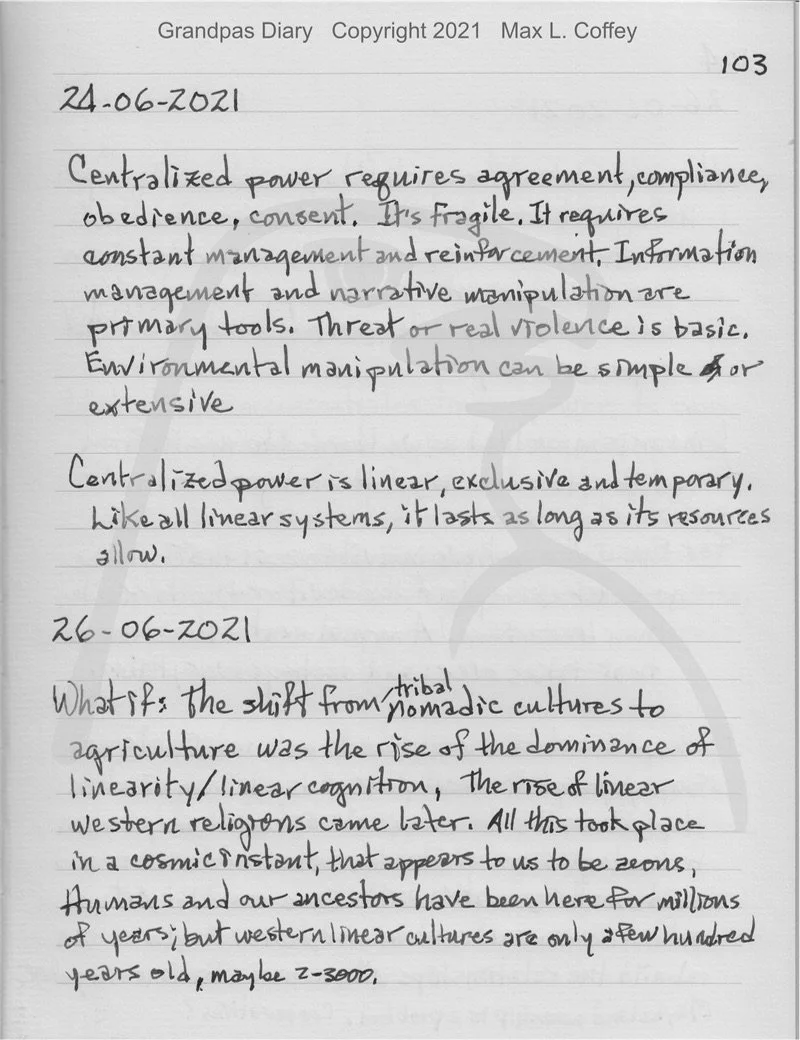 Grandpas Diary Copyright 2021 Max L. Coffey
103
24-06-2021
Centralized power requires agreement, compliance,
obedience, consent. It's fragile. It requires
constant management and reinforcement. Information
management and narrative manipulation are
primary tools. Threat or real violence is basic.
Environmental manipulation can be simple or
extensive
Centralized power is linear, exclusive and temporary.
Like all linear systems, it lasts as long as its resources
allow.
26-06-2021
What if: the shift from tribal nomadic cultures to
agriculture was the rise of the dominance of
linearity/linear cognition, The rise of linear
western religions came later. All this took place
in a cosmic instant, that appears to us to be aeons,
Humans and our ancestors have been here for millions
of years; but western linear cultures are only a few hundred
years old, maybe 2-3000.